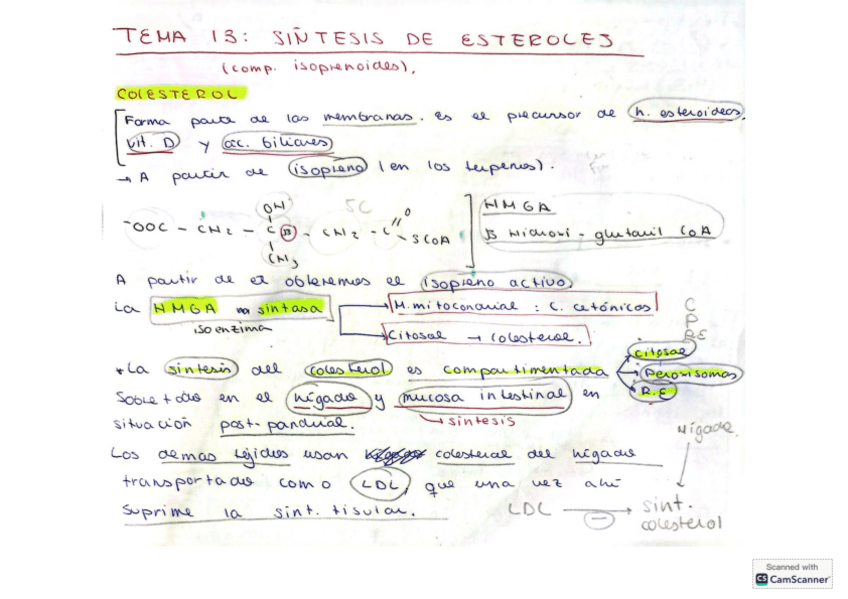 TEMA 13: SÍNTESIS DE ESTEROLES
(comp. isoprenoides).
COLESTEROL
Forma parte de las membranas. es el precursor de h. esteroideas,
vit. D y ac. biliares
→ A partir de isopreno (en los terpenos).
OH 5C
⁻OOC - CH2 - C B - CH2 - C = O
SCoA
CH3
HMGA
B Hidroxi - glutaril CoA
A partir de él obtenemos el isopreno activo
La HMGA sintasa
isoenzima
M. mitocondrial : C. cetónicos
Citosol → colesterol.
C
P
RE
*La síntesis del colesterol es compartimentada
citosol
Peroxisomas
R.E
Sobre todo en el hígado y mucosa intestinal en
situación post-pandrial.
síntesis
Hígado.
Los demás tejidos usan colesterol del hígado
transportado como LDL, que una vez ahí
suprime la sint. tisular.
LDL → sint.
colesterol
Scanned with
CS CamScanner